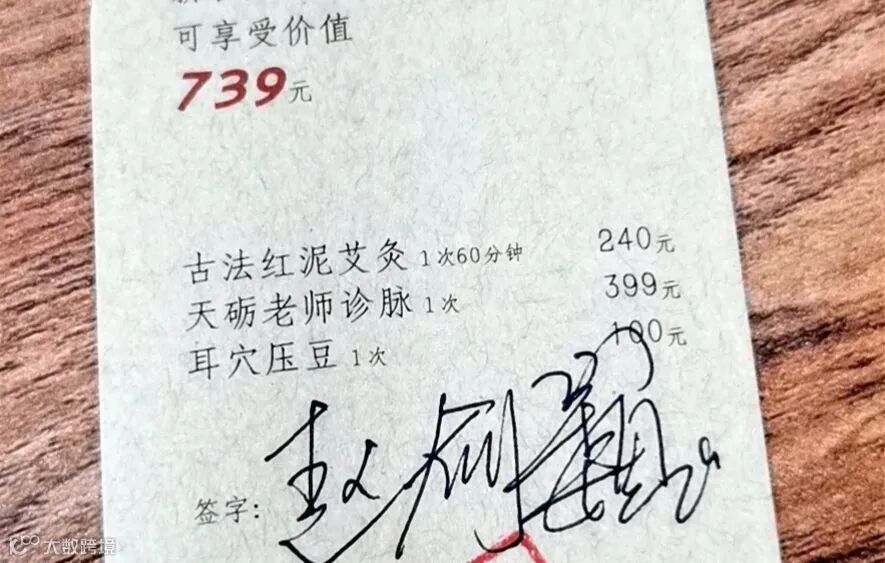 可享受价值
739元
古法红泥艾灸 1次60分钟 240元
天砺老师诊脉 1次 399元
耳穴压豆 1次 100元
签字：
大数跨境